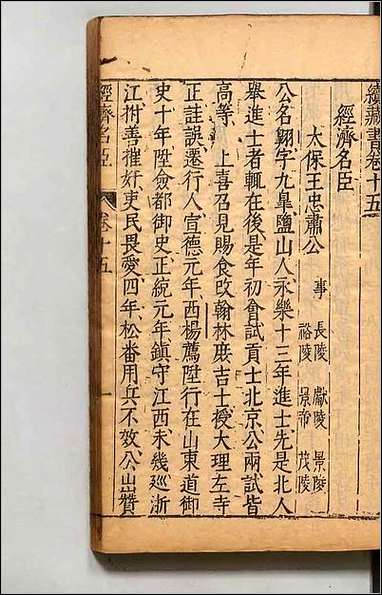 續藏書卷十五
經濟名臣
太保王忠肅公
事 長陵 獻陵 景陵
裕陵 景帝 茂陵
公名翺字九皐鹽山人永樂十三年進士先是北人
舉進士者輒在後是年初會試貢士北京公兩試皆
高等 上喜召見賜食改翰林庶吉士授大理左寺
正註誤遷行人宣德元年西楊薦陞行在山東道御
史十年陞僉都御史正統元年鎮守江西未幾巡浙
江拊善摧奸吏民畏愛四年松番用兵不效公出贊
經濟名臣 卷十五 一